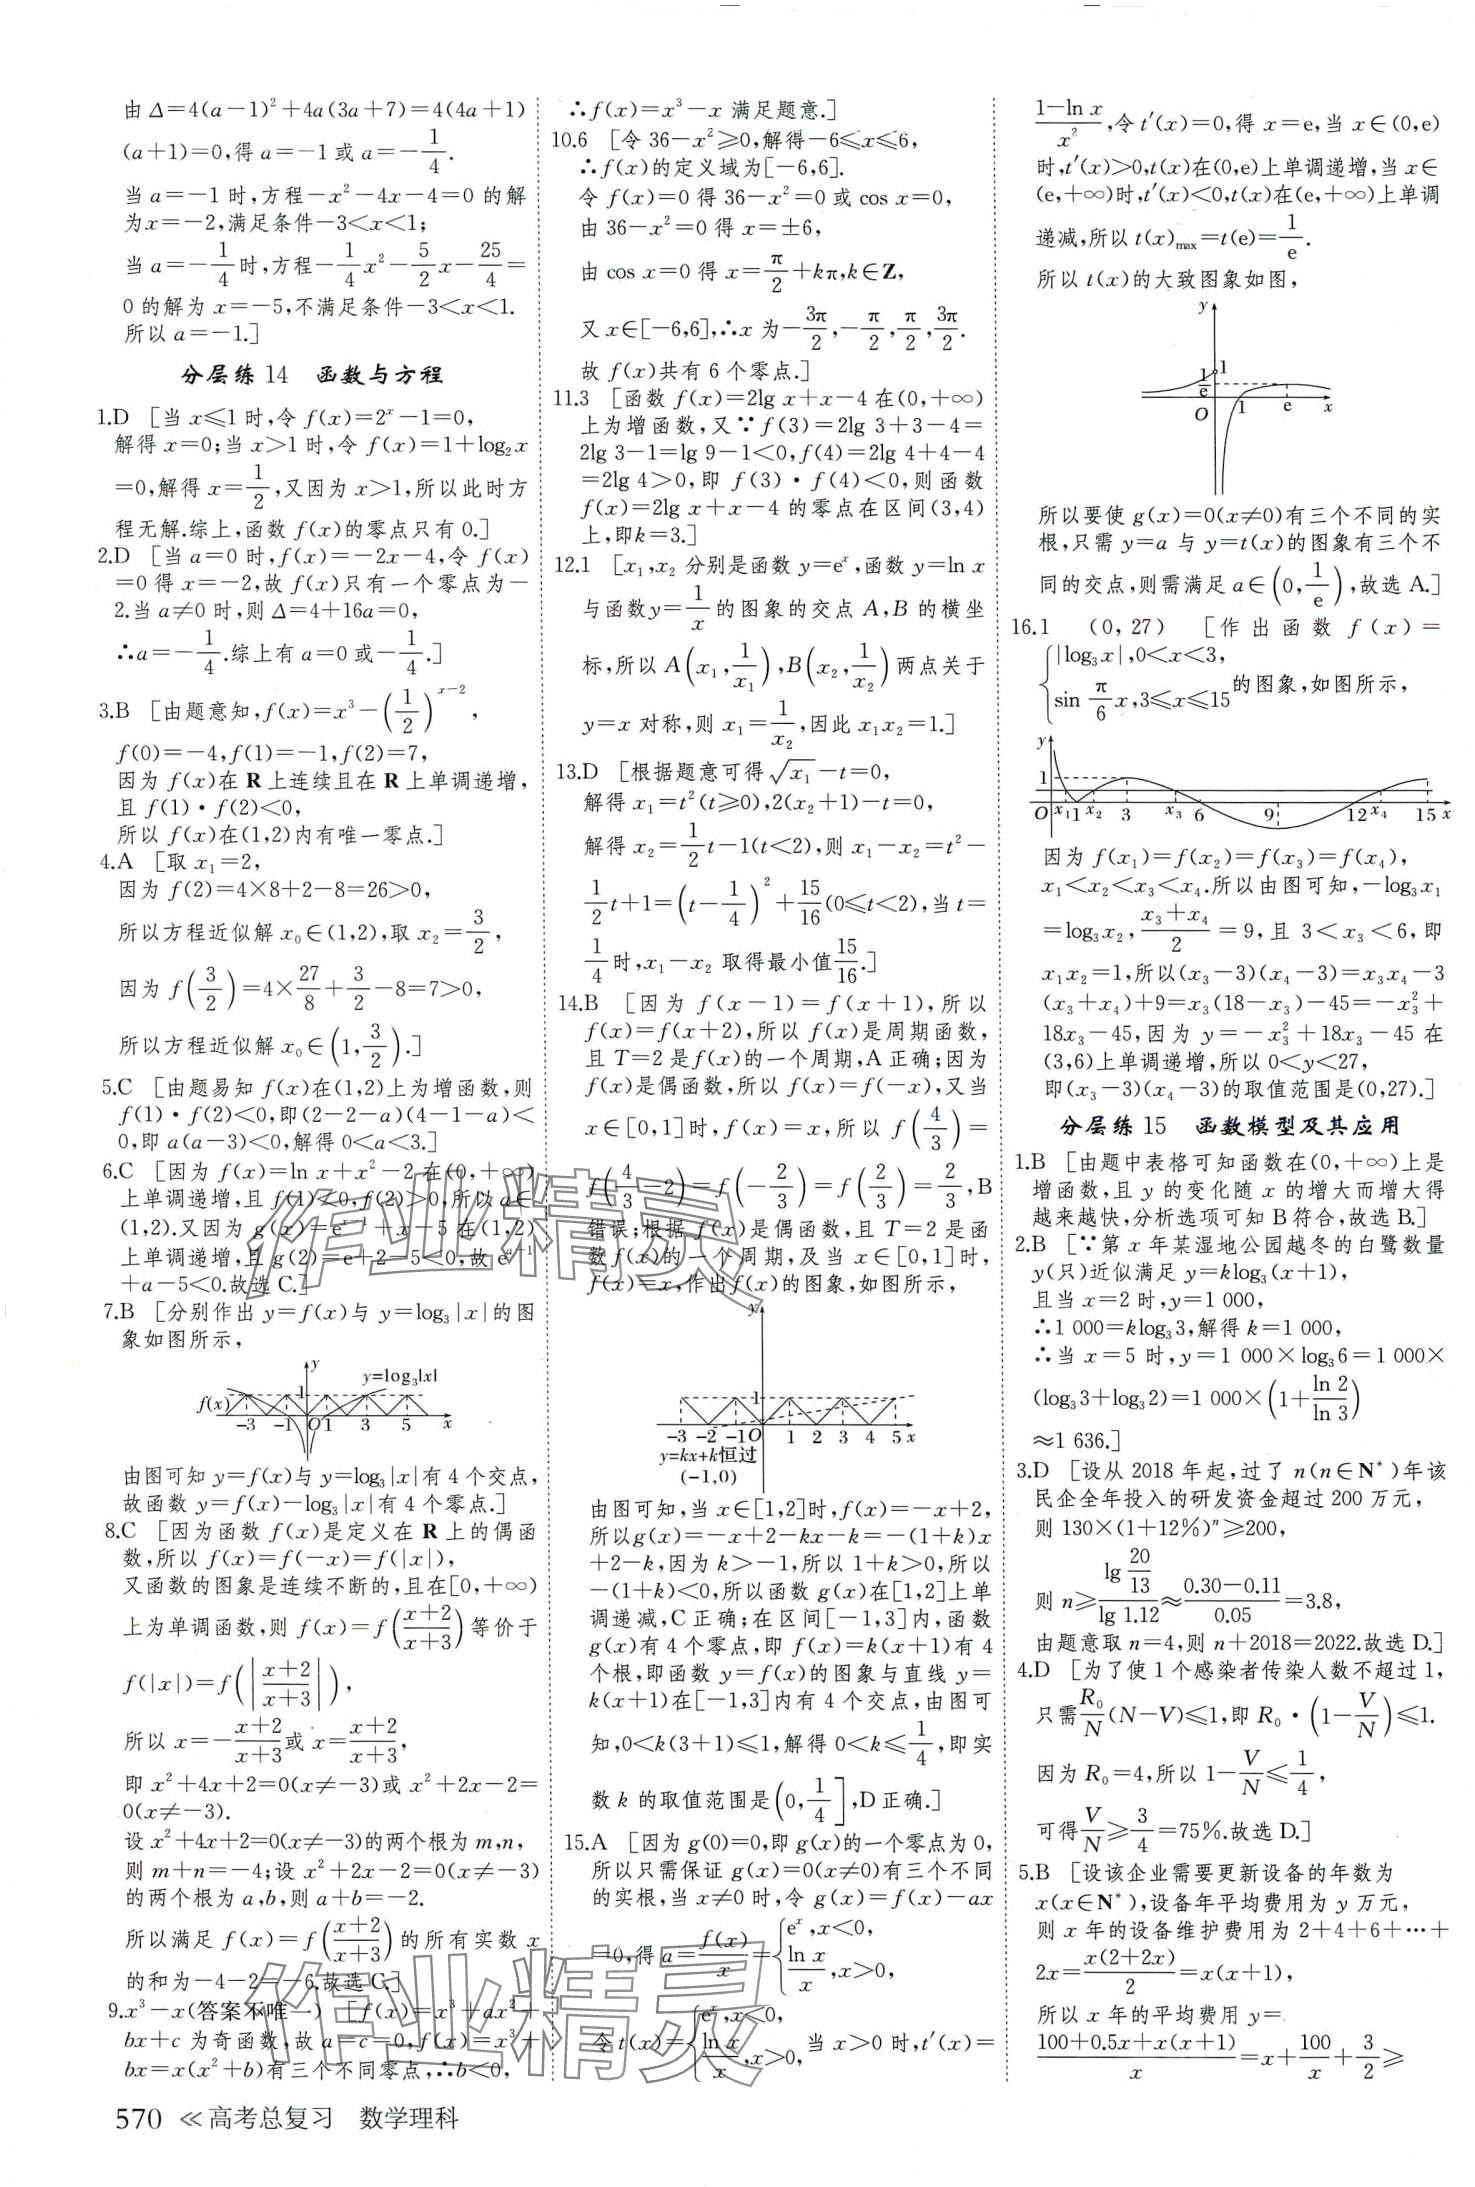 由 Δ=4(a-1)²+4a(3a+7)=4(4a+1)
(a+1)=0,得 a=-1 或 a=-1/4.
当 a=-1 时,方程-x²-4x-4=0 的解
为x=-2,满足条件-3<x<1;
当 a=-1/4时,方程-1/4x²-5/2x-25/4=
0 的解为 x=-5,不满足条件-3<x<1.
所以 a=-1.]
分层练 14 函数与方程
1.D [当 x≤1 时,令 f(x)=2ˣ-1=0,
解得 x=0;当 x>1 时,令 f(x)=1+log₂x
=0,解得 x=1/2,又因为 x>1,所以此时方
程无解.综上,函数 f(x)的零点只有 0.]
2.D [当 a=0 时,f(x)=-2x-4,令 f(x)
=0 得 x=-2,故 f(x)只有一个零点为-
2.当 a≠0 时,则 Δ=4+16a=0,
∴a=-1/4.综上有 a=0 或-1/4.]
3.B [由题意知,f(x)=x³-(1/2)^(x-2),
f(0)=-4,f(1)=-1,f(2)=7,
因为 f(x)在 R 上连续且在 R 上单调递增,
且 f(1)·f(2)<0,
所以 f(x)在(1,2)内有唯一零点.]
4.A [取 x₁=2,
因为 f(2)=4×8+2-8=26>0,
所以方程近似解 x₀∈(1,2),取 x₂=3/2,
因为 f(3/2)=4×27/8+3/2-8=7>0,
所以方程近似解 x₀∈(1,3/2).]
5.C [由题易知 f(x)在(1,2)上为增函数,则
f(1)·f(2)<0,即(2-2-a)(4-1-a)<
0,即 a(a-3)<0,解得 0<a<3.]
6.C [因为 f(x)=ln x+x²-2 在(0,+∞)
上单调递增,且 f(1)<0,f(2)>0,所以 a∈
(1,2).又因为 g(x)=eˣ⁻¹+x-5 在(1,2)
上单调递增,且 g(2)=e+2-5<0,故 eᵃ⁻¹
+a-5<0.故选 C.]
7.B [分别作出 y=f(x)与 y=log₃|x|的图
象如图所示,
y
y=log₃|x|
f(x)
1
-3 -1 O 1 3 5 x
由图可知 y=f(x)与 y=log₃|x|有 4 个交点,
故函数 y=f(x)-log₃|x|有 4 个零点.]
8.C [因为函数 f(x)是定义在 R 上的偶函
数,所以 f(x)=f(-x)=f(|x|),
又函数的图象是连续不断的,且在[0,+∞)
上为单调函数,则 f(x)=f((x+2)/(x+3))等价于
f(|x|)=f(|(x+2)/(x+3)|),
所以 x=-(x+2)/(x+3)或 x=(x+2)/(x+3),
即 x²+4x+2=0(x≠-3)或 x²+2x-2=
0(x≠-3).
设 x²+4x+2=0(x≠-3)的两个根为 m,n,
则 m+n=-4;设 x²+2x-2=0(x≠-3)
的两个根为 a,b,则 a+b=-2.
所以满足 f(x)=f((x+2)/(x+3))的所有实数 x
的和为-4-2=-6.故选 C.]
9.x³-x(答案不唯一) [f(x)=x³+ax²+
bx+c 为奇函数,故 a=c=0,f(x)=x³+
bx=x(x²+b)有三个不同零点,∴b<0,
∴f(x)=x³-x 满足题意.]
10.6 [令 36-x²≥0,解得-6≤x≤6,
∴f(x)的定义域为[-6,6].
令 f(x)=0 得 36-x²=0 或 cos x=0,
由 36-x²=0 得 x=±6,
由 cos x=0 得 x=π/2+kπ,k∈Z,
又 x∈[-6,6],∴x 为-3π/2,-π/2,π/2,3π/2.
故 f(x)共有 6 个零点.]
11.3 [函数 f(x)=2lg x+x-4 在(0,+∞)
上为增函数,又∵f(3)=2lg 3+3-4=
2lg 3-1=lg 9-1<0,f(4)=2lg 4+4-4
=2lg 4>0,即 f(3)·f(4)<0,则函数
f(x)=2lg x+x-4 的零点在区间(3,4)
上,即k=3.]
12.1 [x₁,x₂ 分别是函数 y=eˣ,函数 y=ln x
与函数y=1/x的图象的交点 A,B 的横坐
标,所以 A(x₁,1/x₁),B(x₂,1/x₂)两点关于
y=x 对称,则 x₁=1/x₂,因此 x₁x₂=1.]
13.D [根据题意可得√x₁-t=0,
解得 x₁=t²(t≥0),2(x₂+1)-t=0,
解得 x₂=1/2t-1(t<2),则 x₁-x₂=t²-
1/2t+1=(t-1/4)²+15/16(0≤t<2),当 t=
1/4时,x₁-x₂ 取得最小值15/16.]
14.B [因为 f(x-1)=f(x+1),所以
f(x)=f(x+2),所以 f(x)是周期函数,
且 T=2 是f(x)的一个周期,A 正确;因为
f(x)是偶函数,所以 f(x)=f(-x),又当
x∈[0,1]时,f(x)=x,所以 f(4/3)=
f(4/3-2)=f(-2/3)=f(2/3)=2/3,B
错误;根据 f(x)是偶函数,且 T=2 是函
数f(x)的一个周期,及当 x∈[0,1]时,
f(x)=x,作出 f(x)的图象,如图所示,
y
-3 -2 -1 O 1 2 3 4 5 x
y=kx+k恒过
(-1,0)
由图可知,当 x∈[1,2]时,f(x)=-x+2,
所以g(x)=-x+2-kx-k=-(1+k)x
+2-k,因为 k>-1,所以 1+k>0,所以
-(1+k)<0,所以函数 g(x)在[1,2]上单
调递减,C 正确;在区间[-1,3]内,函数
g(x)有 4 个零点,即 f(x)=k(x+1)有 4
个根,即函数 y=f(x)的图象与直线 y=
k(x+1)在[-1,3]内有 4 个交点,由图可
知,0<k(3+1)≤1,解得 0<k≤1/4,即实
数 k 的取值范围是(0,1/4],D 正确.]
15.A [因为 g(0)=0,即 g(x)的一个零点为 0,
所以只需保证 g(x)=0(x≠0)有三个不同
的实根,当 x≠0 时,令 g(x)=f(x)-ax
=0,得 a=f(x)/x={eˣ,x<0, ln x/x,x>0,
令 t(x)={eˣ,x<0, ln x/x,x>0, 当 x>0 时,t′(x)=
(1-ln x)/x²,令 t′(x)=0,得 x=e,当 x∈(0,e)
时,t′(x)>0,t(x)在(0,e)上单调递增,当 x∈
(e,+∞)时,t′(x)<0,t(x)在(e,+∞)上单调
递减,所以 t(x)max=t(e)=1/e.
所以 t(x)的大致图象如图,
y
1
1/e
O 1 e x
所以要使 g(x)=0(x≠0)有三个不同的实
根,只需 y=a 与 y=t(x)的图象有三个不
同的交点,则需满足 a∈(0,1/e),故选 A.]
16.1 (0,27) [作出函数 f(x)=
{|log₃x|,0<x<3, sin π/6x,3≤x≤15的图象,如图所示,
y
1
O x₁ 1 x₂ 3 x₃ 6 9 12 x₄ 15 x
因为 f(x₁)=f(x₂)=f(x₃)=f(x₄),
x₁<x₂<x₃<x₄.所以由图可知,-log₃x₁
=log₃x₂,(x₃+x₄)/2=9,且 3<x₃<6,即
x₁x₂=1,所以(x₃-3)(x₄-3)=x₃x₄-3
(x₃+x₄)+9=x₃(18-x₃)-45=-x₃²+
18x₃-45,因为 y=-x₃²+18x₃-45 在
(3,6)上单调递增,所以 0<y<27,
即(x₃-3)(x₄-3)的取值范围是(0,27).]
分层练 15 函数模型及其应用
1.B [由题中表格可知函数在(0,+∞)上是
增函数,且 y 的变化随 x 的增大而增大得
越来越快,分析选项可知 B 符合,故选 B.]
2.B [∵第 x 年某湿地公园越冬的白鹭数量
y(只)近似满足 y=klog₃(x+1),
且当 x=2 时,y=1 000,
∴1 000=klog₃3,解得 k=1 000,
∴当 x=5 时,y=1 000×log₃6=1 000×
(log₃3+log₃2)=1 000×(1+ln 2/ln 3)
≈1 636.]
3.D [设从 2018 年起,过了 n(n∈N*)年该
民企全年投入的研发资金超过 200 万元,
则 130×(1+12%)ⁿ≥200,
则 n≥lg 20/13/lg 1.12≈(0.30-0.11)/0.05=3.8,
由题意取 n=4,则 n+2018=2022.故选 D.]
4.D [为了使 1 个感染者传染人数不超过 1,
只需R₀/N(N-V)≤1,即 R₀·(1-V/N)≤1.
因为 R₀=4,所以 1-V/N≤1/4,
可得V/N≥3/4=75%.故选 D.]
5.B [设该企业需要更新设备的年数为
x(x∈N*),设备年平均费用为 y 万元,
则 x 年的设备维护费用为 2+4+6+…+
2x=x(2+2x)/2=x(x+1),
所以 x 年的平均费用 y=
(100+0.5x+x(x+1))/x=x+100/x+3/2≥
570 ≪高考总复习 数学理科
作业精灵
作业精灵